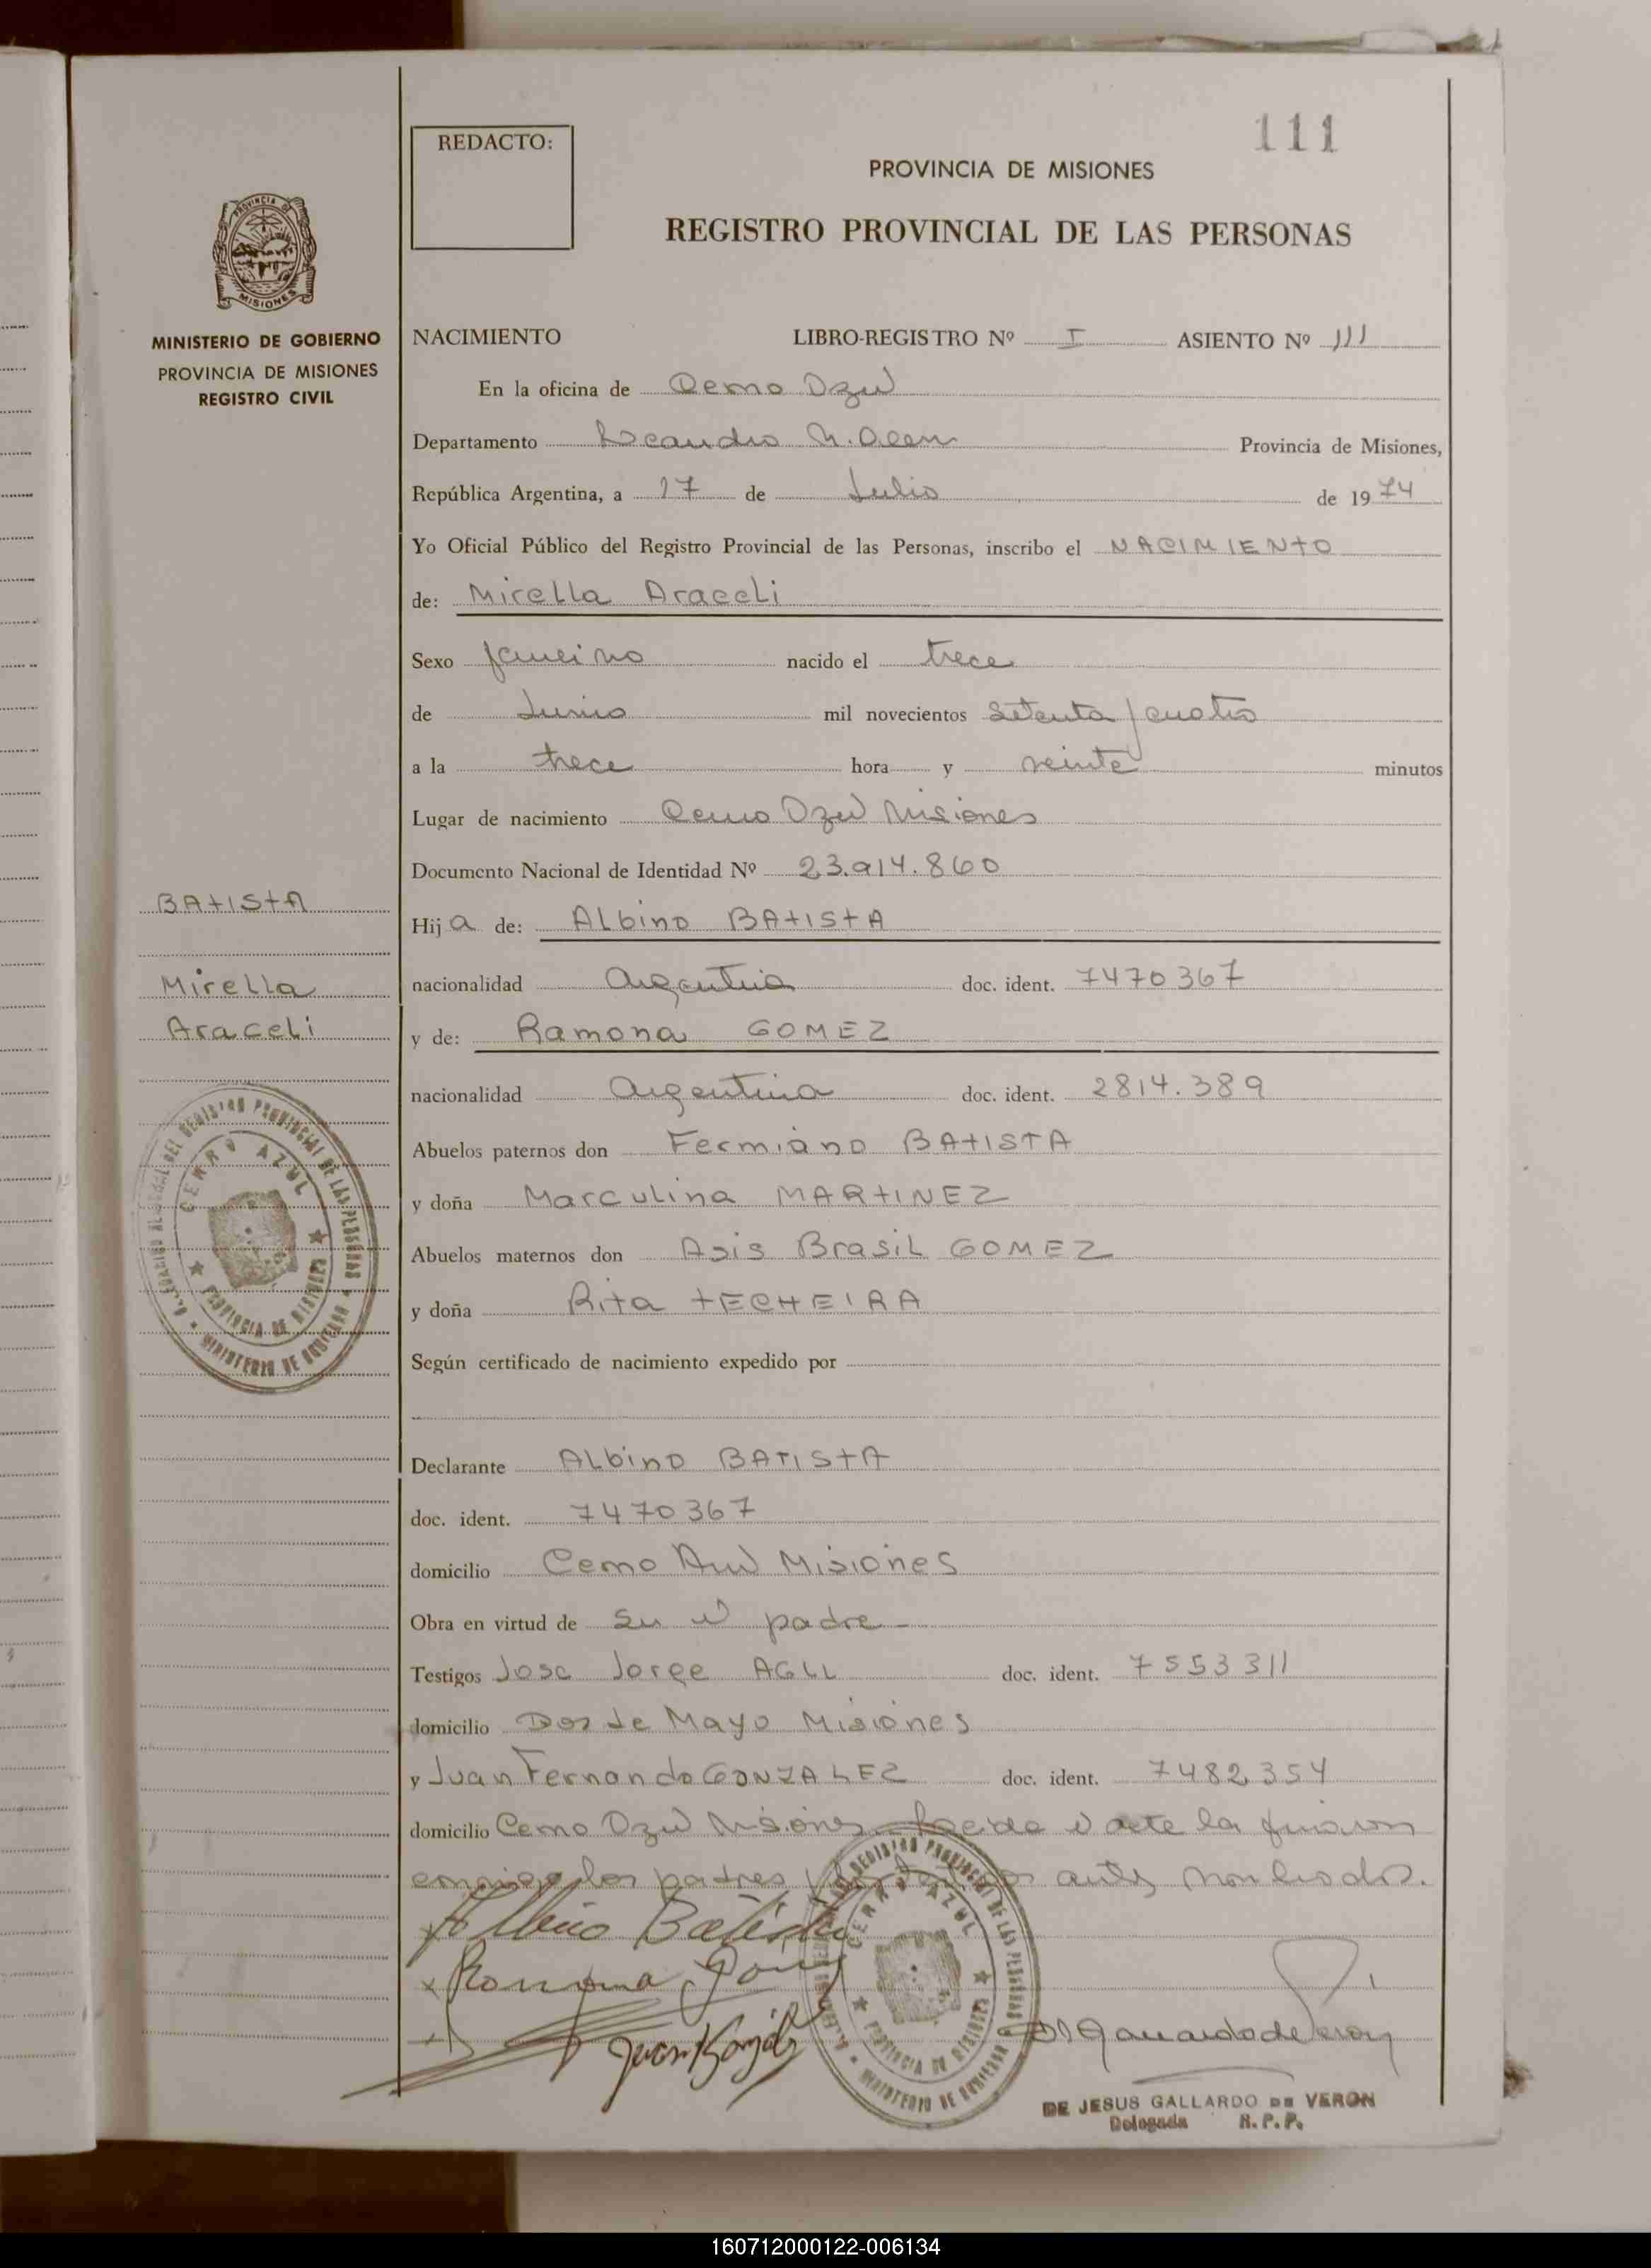 111
REDACTO:
PROVINCIA DE MISIONES
REGISTRO PROVINCIAL DE LAS PERSONAS
PROVINCIA DE
MISIONES
MINISTERIO DE GOBIERNO
PROVINCIA DE MISIONES
REGISTRO CIVIL
NACIMIENTO LIBRO-REGISTRO Nº I ASIENTO Nº 111
En la oficina de Cerro Azul
Departamento Leandro N. Alem Provincia de Misiones,
República Argentina, a 17 de Julio de 1974
Yo Oficial Público del Registro Provincial de las Personas, inscribo el NACIMIENTO
de: Mirella Araceli
Sexo femenino nacido el trece
de Junio mil novecientos setenta y cuatro
a la trece hora y veinte minutos
Lugar de nacimiento Cerro Azul Misiones
Documento Nacional de Identidad Nº 23.914.860
BATISTA
Hija de: Albino BATISTA
Mirella
nacionalidad Argentina doc. ident. 7470367
Araceli
y de: Ramona GOMEZ
nacionalidad Argentina doc. ident. 2814.389
Abuelos paternos don Fermiano BATISTA
y doña Marculina MARTINEZ
Abuelos maternos don Asis Brasil GOMEZ
y doña Rita TECHEIRA
CERRO AZUL
PROVINCIA DE MISIONES
MINISTERIO DE GOBIERNO
Según certificado de nacimiento expedido por
Declarante Albino BATISTA
doc. ident. 7470367
domicilio Cerro Azul Misiones
Obra en virtud de Su el padre
Testigos Jose Jorge AGLL doc. ident. 7553311
domicilio Dos de Mayo Misiones
y Juan Fernando GONZALEZ doc. ident. 7482354
domicilio Cerro Azul Misiones Leida el acta la firman
conmigo los padres y testigos antes nombrados.
Albino Batista
Ramona Gomez
Juan González
CERRO AZUL
PROVINCIA DE MISIONES
MINISTERIO DE GOBIERNO
DE JESUS GALLARDO DE VERON
Delegada R. P. P.
160712000122-006134